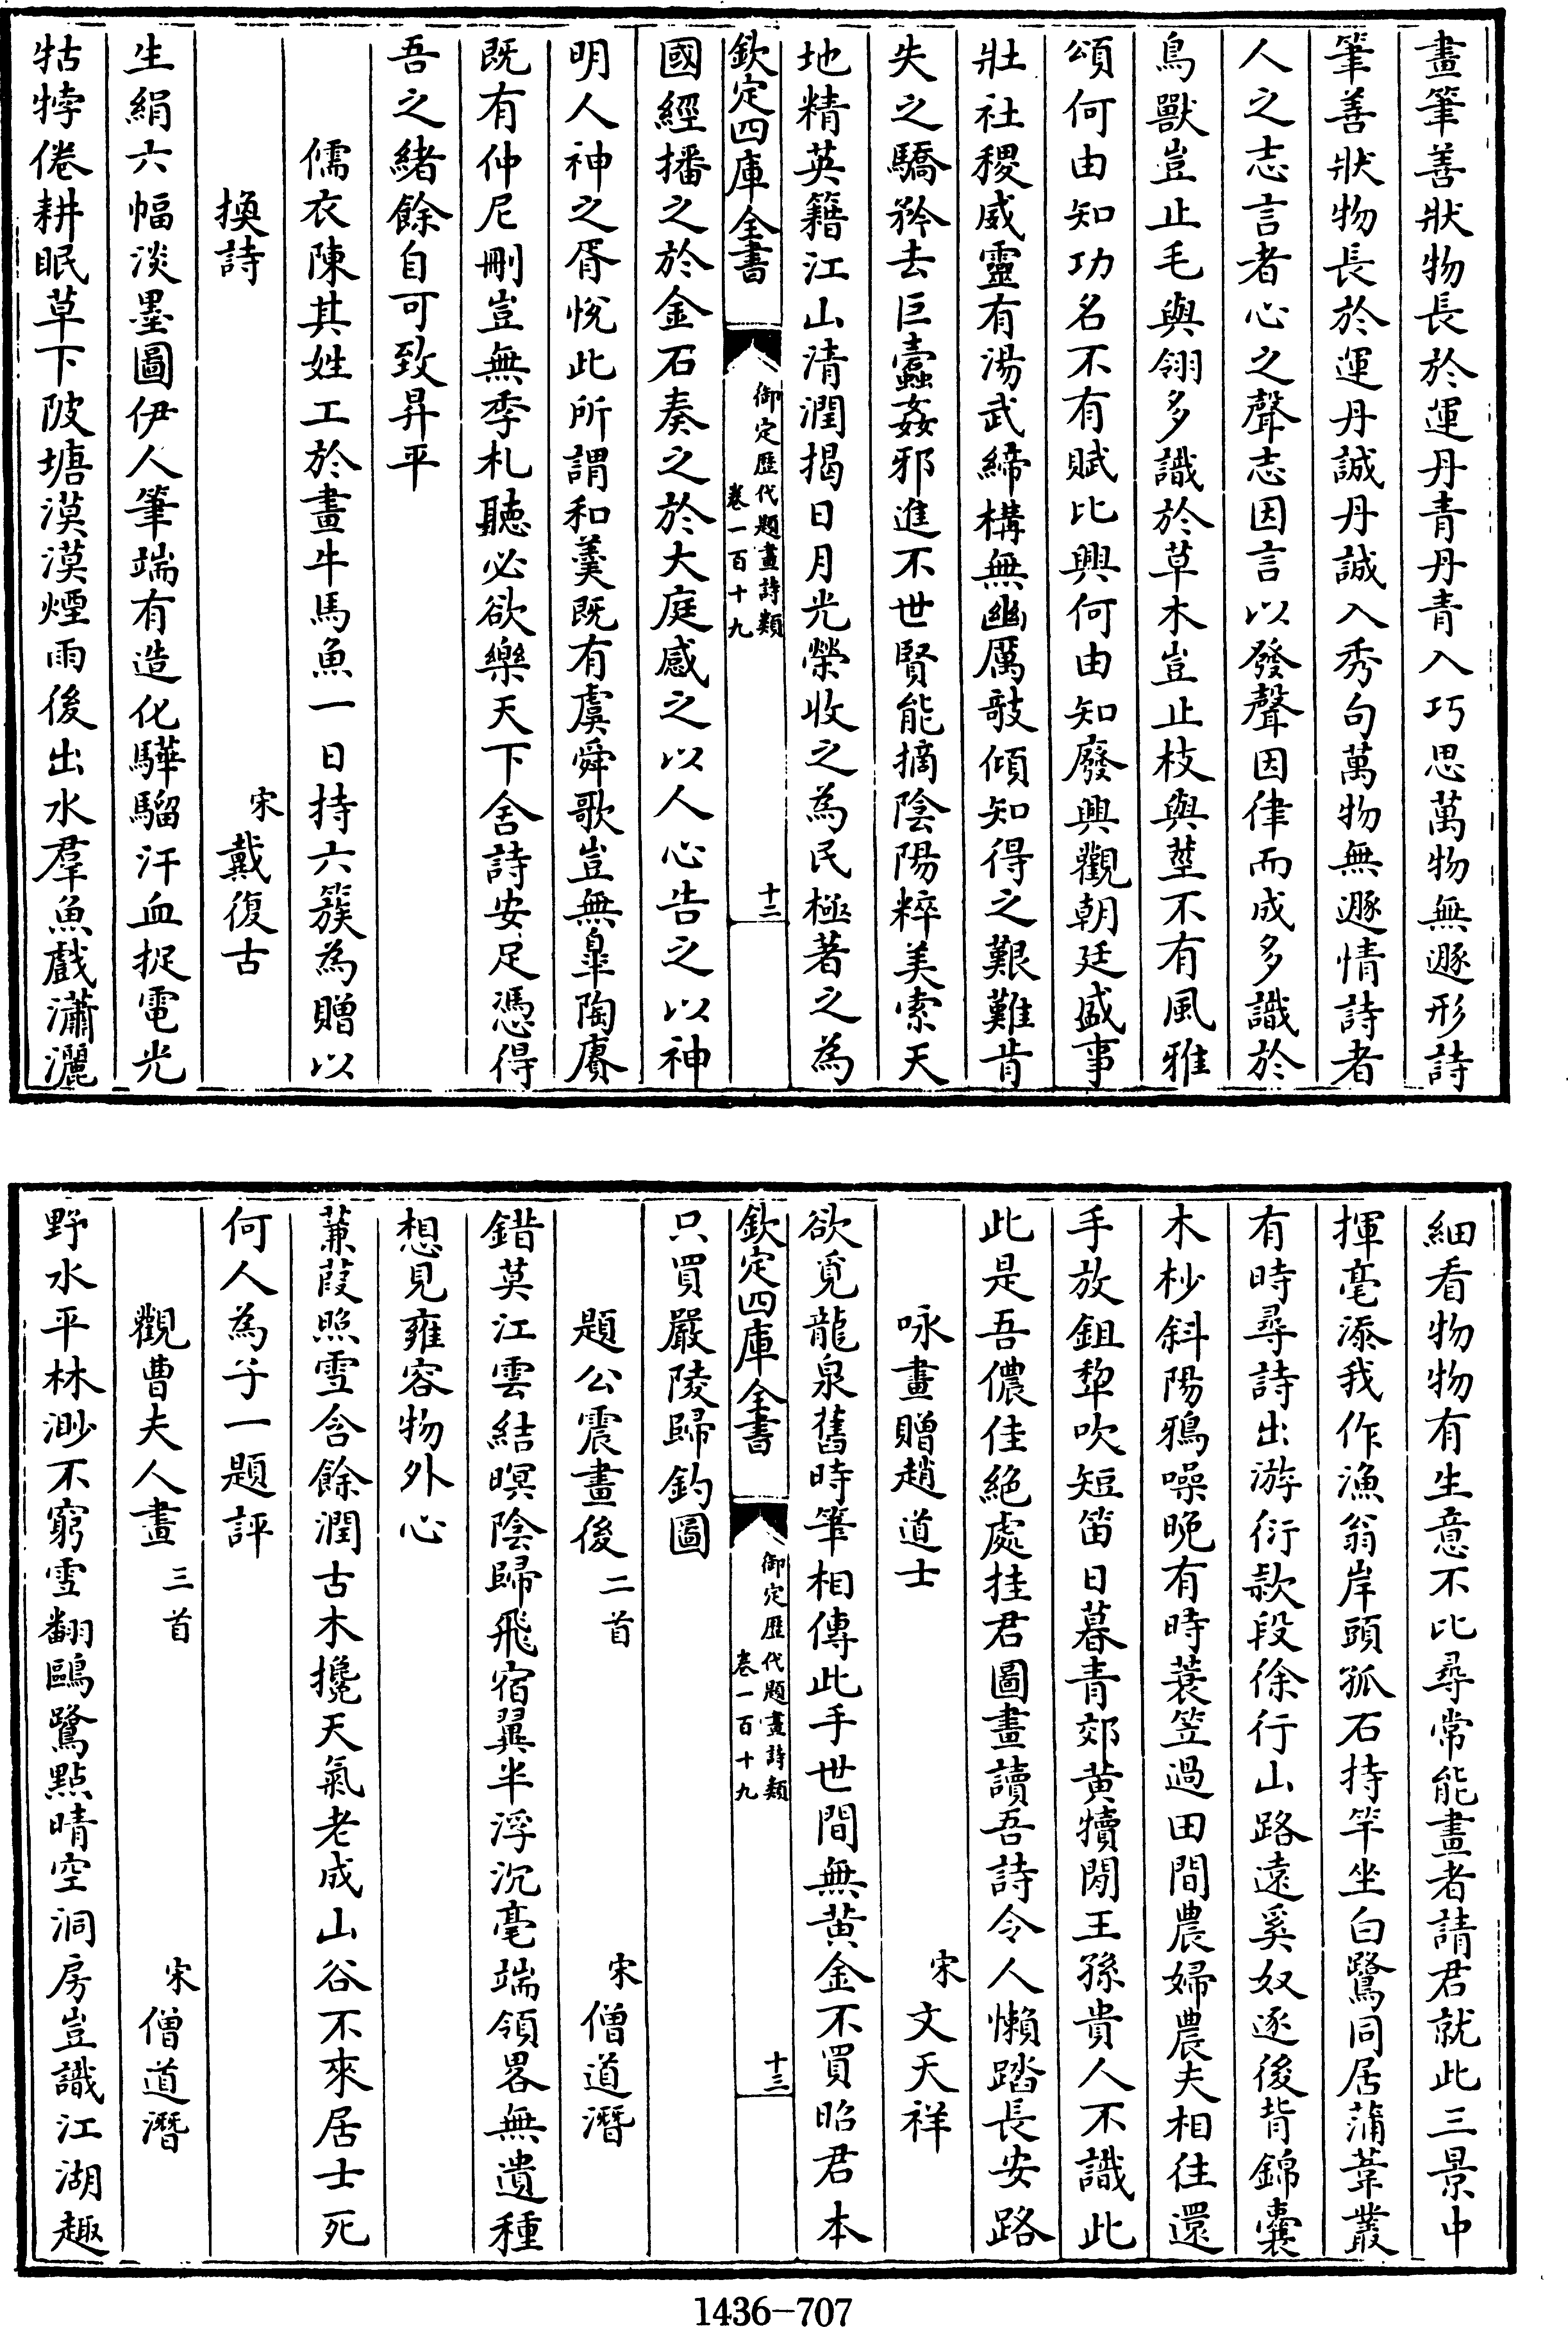 畫筆善狀物長於運丹青丹青入巧思萬物無遯形詩
筆善狀物長於運丹誠丹誠入秀句萬物無遯情詩者
人之志言者心之聲志因言以發聲因律而成多識於
鳥獸豈止毛與翎多識於草木豈止枝與莖不有風雅
頌何由知功名不有賦比興何由知廢興觀朝廷盛事
壯社稷威靈有湯武締構無幽厲敧傾知得之艱難肯
失之驕矜去巨蠹姦邪進不世賢能摘陰陽粹美索天
地精英籍江山清潤揭日月光榮收之為民極著之為
欽定四庫全書
御定歷代題畫詩類
卷一百十九
十二
國經播之於金石奏之於大庭感之以人心告之以神
明人神之胥悅此所謂和羹既有虞舜歌豈無臯陶賡
既有仲尼刪豈無季札聽必欲樂天下舍詩安足憑得
吾之緒餘自可致昇平
儒衣陳其姓工於畫牛馬魚一日持六簇為贈以
換詩
宋戴復古
生絹六幅淡墨圖伊人筆端有造化驊騮汗血捉電光
牯牸倦耕眠草下陂塘漠漠煙雨後出水羣魚戲瀟灑
細看物物有生意不比尋常能畫者請君就此三景中
揮毫添我作漁翁岸頭孤石持竿坐白鷺同居蒲葦叢
有時尋詩出游衍款段徐行山路遠奚奴逐後背錦囊
木杪斜陽鴉噪晚有時蓑笠過田間農婦農夫相往還
手放鉏犂吹短笛日暮青郊黃犢閒王孫貴人不識此
此是吾儂佳絕處挂君圖畫讀吾詩令人懶踏長安路
咏畫贈趙道士
宋文天祥
欲覓龍泉舊時筆相傳此手世間無黃金不買昭君本
欽定四庫全書
御定歷代題畫詩類
卷一百十九
十三
只買嚴陵歸釣圖
題公震畫後二首
宋僧道潛
錯莫江雲結暝陰歸飛宿翼半浮沉毫端領畧無遺種
想見雍容物外心
蒹葭照雪含餘潤古木攙天氣老成山谷不來居士死
何人為子一題評
觀曹夫人畫三首
宋僧道潛
野水平林渺不窮雪翻鷗鷺點晴空洞房豈識江湖趣
1436-707